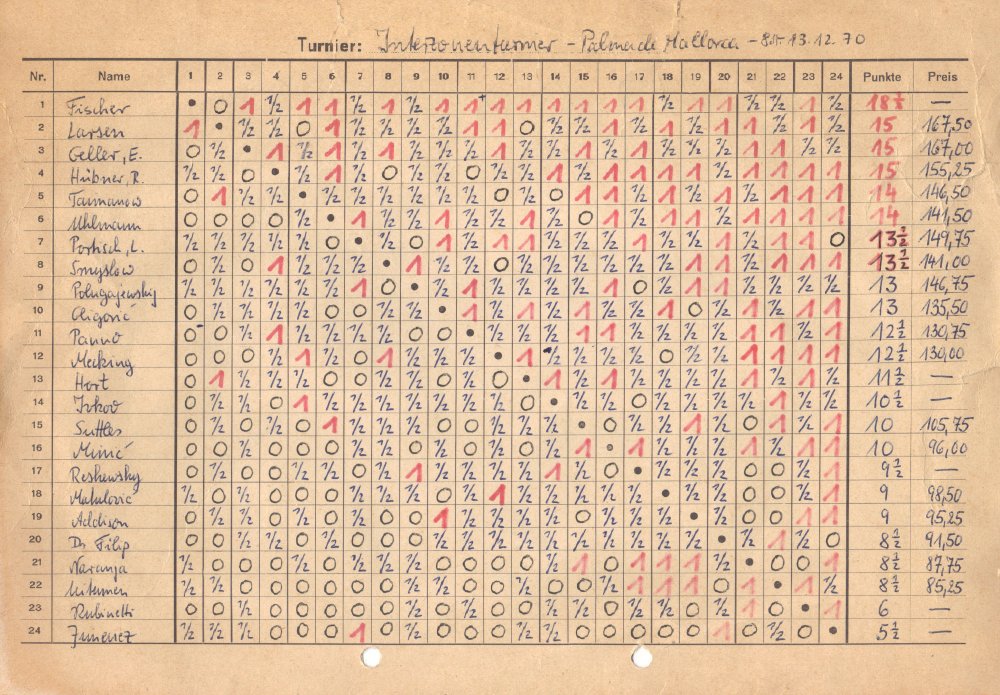 Turnier: Interzonenturnier - Palma de Mallorca - 8.11.-13.12.70
Nr. Name 1 2 3 4 5 6 7 8 9 10 11 12 13 14 15 16 17 18 19 20 21 22 23 24 Punkte Preis
1 Fischer • 0 1 1/2 1 1 1/2 1 1/2 1 1+ 1 1 1 1 1 1 1/2 1 1 1/2 1/2 1 1/2 18 1/2 —
2 Larsen 1 • 1/2 1/2 0 1 1/2 1/2 1/2 1/2 1 1 0 1/2 1/2 1 1/2 1 1/2 1 1 1/2 1 1/2 15 167,50
3 Geller, E. 0 1/2 • 1 1/2 1 1/2 1 1/2 1/2 1/2 1 1/2 1/2 1 1/2 1 1/2 1/2 1/2 1 1 1/2 1/2 15 167,00
4 Hübner, R. 1/2 1/2 0 • 1/2 1 1/2 0 1/2 1/2 0 1/2 1/2 1 1/2 1 1 1 1 1/2 1 1 1 1 15 155,25
5 Taimanow 0 1 1/2 1/2 • 1/2 1/2 1/2 1/2 1/2 1/2 0 1/2 0 1 1 1/2 1 1/2 1 1/2 1 1 1 14 146,50
6 Uhlmann 0 0 0 0 1/2 • 1 1/2 1/2 1 1/2 1/2 1 1/2 0 1 1/2 1 1 1/2 1 1 1 1 14 141,50
7 Portisch, L. 1/2 1/2 1/2 1/2 1/2 0 • 1/2 0 1 1/2 1 1 1/2 1/2 1/2 1 1/2 1/2 1 1/2 1 1 0 13 1/2 149,75
8 Smyslow 0 1/2 0 1 1/2 1/2 1/2 • 1 1/2 1/2 0 1/2 1/2 1/2 1/2 1/2 1/2 1 1 1/2 1 1 1 13 1/2 141,00
9 Polugajewsky 0 1/2 1/2 1/2 1/2 1/2 1 0 • 1/2 1 1/2 1/2 1/2 1 1/2 0 1/2 1 1 1/2 1/2 1/2 1/2 13 146,75
10 Gligoric 0 1/2 1/2 1/2 1/2 0 0 1/2 1/2 • 1 1/2 1 1/2 1 1/2 1/2 1 0 1/2 1 1/2 1 1 13 135,50
11 Panno 0 0 1/2 1 1/2 1/2 1/2 1/2 0 0 • 1/2 1/2 1/2 1 1/2 1/2 1/2 1/2 1/2 1 1 1 1 12 1/2 130,75
12 Mecking 0 0 0 1/2 1 1/2 0 1 1/2 1/2 1/2 • 1 1/2 1/2 1/2 1/2 0 1/2 1/2 1 1 1 1 12 1/2 130,00
13 Hort 0 1 1/2 1/2 1/2 0 0 1/2 1/2 0 1/2 0 • 1 1/2 1 1/2 1/2 1/2 1/2 1 1/2 1 1/2 11 1/2 —
14 Ivkov 0 1/2 1/2 0 1 1/2 1/2 1/2 1/2 1/2 1/2 1/2 0 • 1/2 1/2 0 1/2 1/2 1/2 1/2 1 1/2 1/2 10 1/2 —
15 Suttles 0 1/2 0 1/2 0 1 1/2 1/2 0 0 0 1/2 1/2 1/2 • 0 1/2 1/2 1 1/2 1 1 1/2 1 10 105,75
16 Minić 0 0 1/2 0 0 0 1/2 1/2 1/2 1/2 1/2 1/2 0 1/2 1 • 1 1/2 1/2 1/2 1/2 1/2 1/2 1 10 96,00
17 Reshewsky 0 1/2 0 0 1/2 1/2 0 1/2 1 1/2 1/2 1/2 1/2 1 1/2 0 • 1/2 1/2 1/2 0 0 1/2 1 9 1/2 —
18 Matulović 1/2 0 1/2 0 0 0 1/2 1/2 1/2 0 1/2 1 1/2 1/2 1/2 1/2 1/2 • 1/2 1/2 0 0 1/2 1 9 98,50
19 Addison 0 1/2 1/2 0 1/2 0 1/2 0 0 1 1/2 1/2 1/2 1/2 0 1/2 1/2 1/2 • 1/2 0 0 1 1 9 95,25
20 Dr. Filip 0 0 1/2 1/2 0 1/2 0 0 0 1/2 1/2 1/2 1/2 1/2 1/2 1/2 1/2 1/2 1/2 • 1/2 1 1/2 0 8 1/2 91,50
21 Naranja 1/2 0 0 0 1/2 0 1/2 1/2 1/2 0 0 0 0 1/2 0 1/2 1 1 1 1/2 • 0 0 1 8 1/2 87,75
22 Uitumen 1/2 1/2 0 0 0 0 0 0 1/2 1/2 0 0 1/2 0 0 1/2 1 1 1 0 1 • 1 1/2 8 1/2 85,25
23 Rubinetti 0 0 1/2 0 0 0 0 0 1/2 0 0 0 0 1/2 1/2 1/2 1/2 1/2 0 1/2 1 0 • 1 6 —
24 Jimenez 1/2 1/2 1/2 0 0 0 1 0 1/2 0 0 0 1/2 1/2 0 0 0 0 0 1 0 1/2 0 • 5 1/2 —